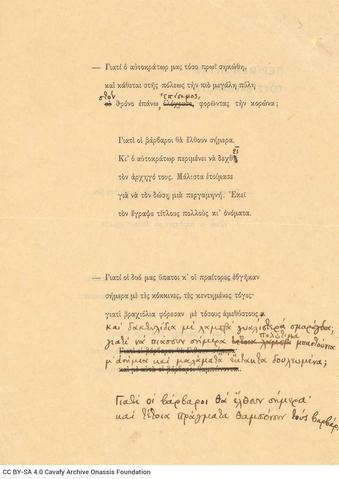 — Γιατί ὁ αὐτοκράτωρ μας τόσο πρωῒ σηκώθη,
καὶ κάθεται στῆς πόλεως τὴν πιὸ μεγάλη πύλη
στὸν θρόνο ἐπάνω, ἐπίσημος, φορῶντας τὴν κορῶνα;
Γιατὶ οἱ βάρβαροι θὰ ἔλθουν σήμερα.
Κι' ὁ αὐτοκράτωρ περιμένει νὰ δεχθεῖ
τὸν ἀρχηγό τους. Μάλιστα ἑτοίμασε
γιὰ νὰ τὸν δώσῃ μιὰ περγαμηνή. Ἐκεῖ
τὸν ἔγραψε τίτλους πολλοὺς κι' ὀνόματα.
— Γιατὶ οἱ δυό μας ὕπατοι κ' οἱ πραίτορες ἐβγῆκαν
σήμερα μὲ τὲς κόκκινες, τὲς κεντημένες τόγες·
γιατὶ βραχιόλια φόρεσαν μὲ τόσους ἀμεθύστους
καὶ δακτυλίδια μὲ λαμπρὰ γυαλιστερὰ σμαράγδια;
γιατὶ νὰ πιάσουν σήμερα πολύτιμα μπαστούνια
μ' ἀσήμια καὶ μαλάματα ἔκτακτα δουλεμένα;
Γιατὶ οἱ βάρβαροι θὰ ἔλθουν σήμερα·
καὶ τέτοια πράγματα θαμπόνουν τοὺς βαρβάρ
CC BY-SA 4.0 Cavafy Archive Onassis Foundation